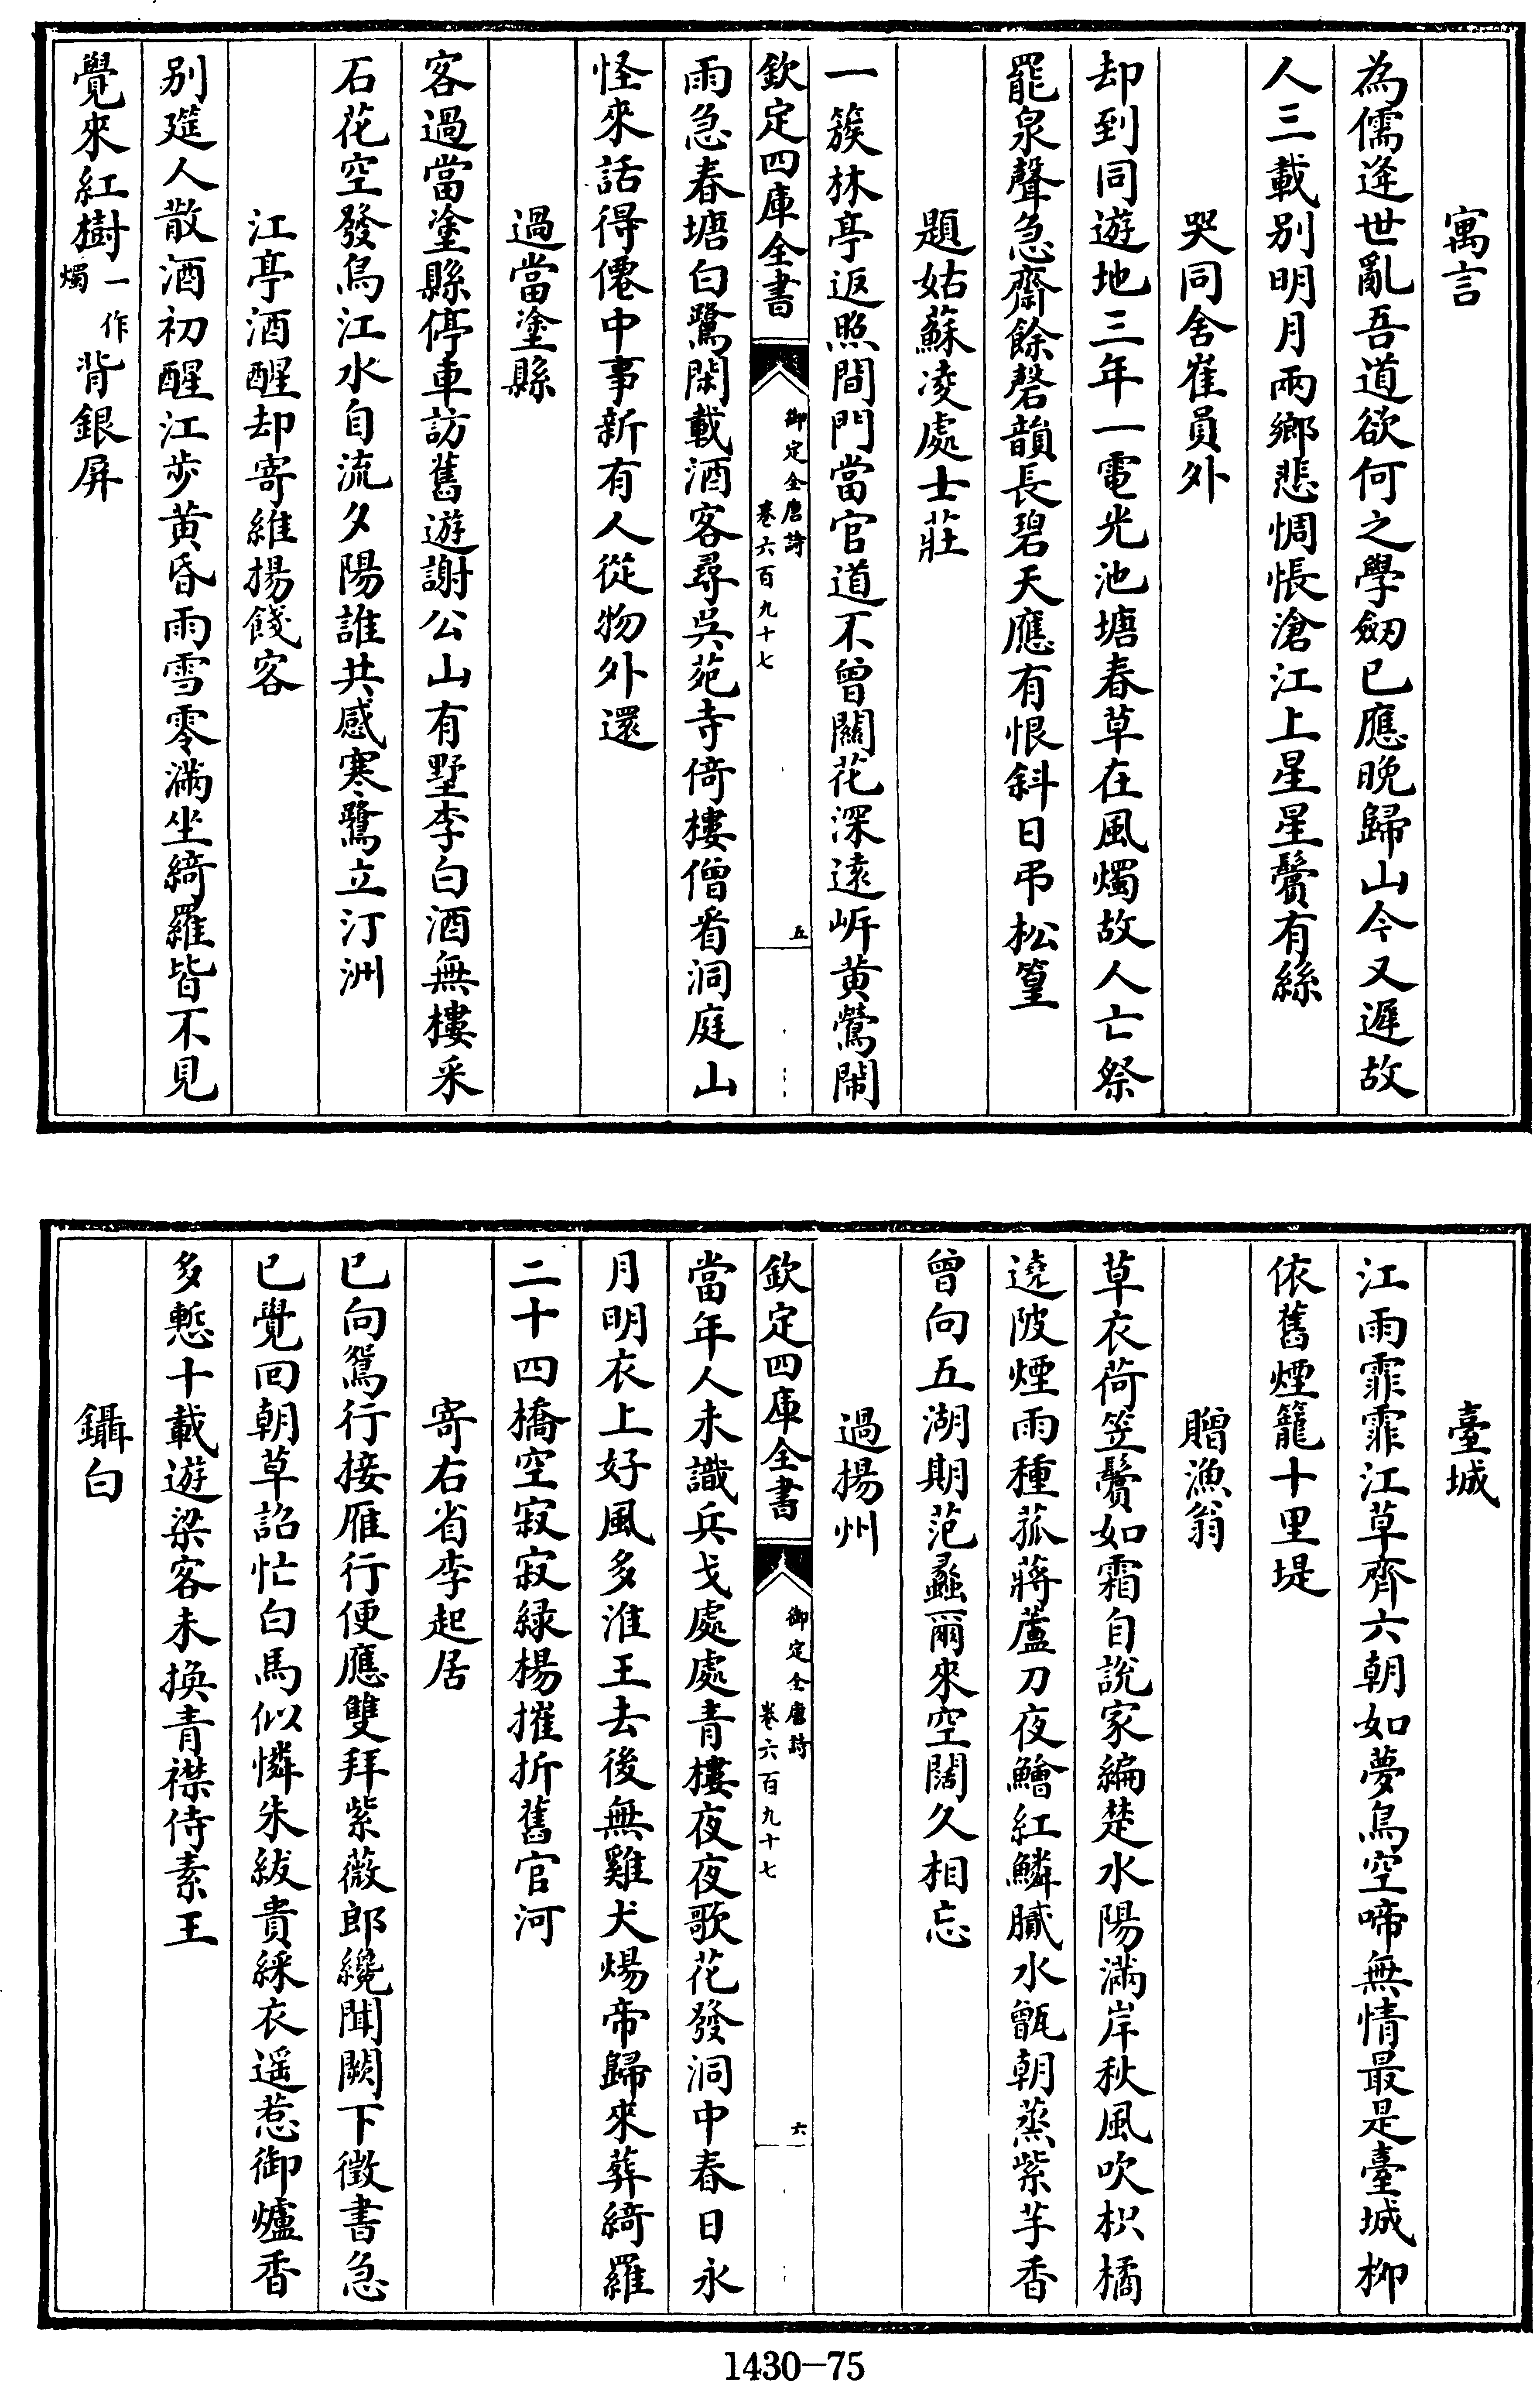 寓言
為儒逢世亂吾道欲何之學劒已應晚歸山今又遲故
人三載别明月兩鄉悲惆悵滄江上星星鬢有絲
哭同舍崔員外
却到同遊地三年一電光池塘春草在風燭故人亡祭
罷泉聲急齋餘磬韻長碧天應有恨斜日弔松篁
題姑蘇凌處士莊
一簇林亭返照間門當官道不曾關花深遠岍黄鶯閙
欽定四庫全書
御定全唐詩
卷六百九十七
五
雨急春塘白鷺閑載酒客尋吳苑寺倚樓僧看洞庭山
怪來話得僊中事新有人從物外還
過當塗縣
客過當塗縣停車訪舊遊謝公山有墅李白酒無樓采
石花空發烏江水自流夕陽誰共感寒鷺立汀洲
江亭酒醒却寄維揚餞客
别筵人散酒初醒江步黄昏雨雪零滿坐綺羅皆不見
覺來紅樹一作燭背銀屏
臺城
江雨霏霏江草齊六朝如夢鳥空啼無情最是臺城柳
依舊煙籠十里堤
贈漁翁
草衣荷笠鬢如霜自説家編楚水陽滿岸秋風吹枳橘
遶陂煙雨種菰蔣蘆刀夜鱠紅鱗膩水甑朝蒸紫芋香
曾向五湖期范蠡爾來空闊久相忘
過揚州
欽定四庫全書
御定全唐詩
卷六百九十七
六
當年人未識兵戈處處青樓夜夜歌花發洞中春日永
月明衣上好風多淮王去後無雞犬煬帝歸來葬綺羅
二十四橋空寂寂緑楊摧折舊官河
寄右省李起居
已向鴛行接雁行便應雙拜紫薇郎纔聞闕下徵書急
已覺回朝草詔忙白馬似憐朱紱貴綵衣遥惹御爐香
多慙十載遊梁客未換青襟侍素王
鑷白
1430-75